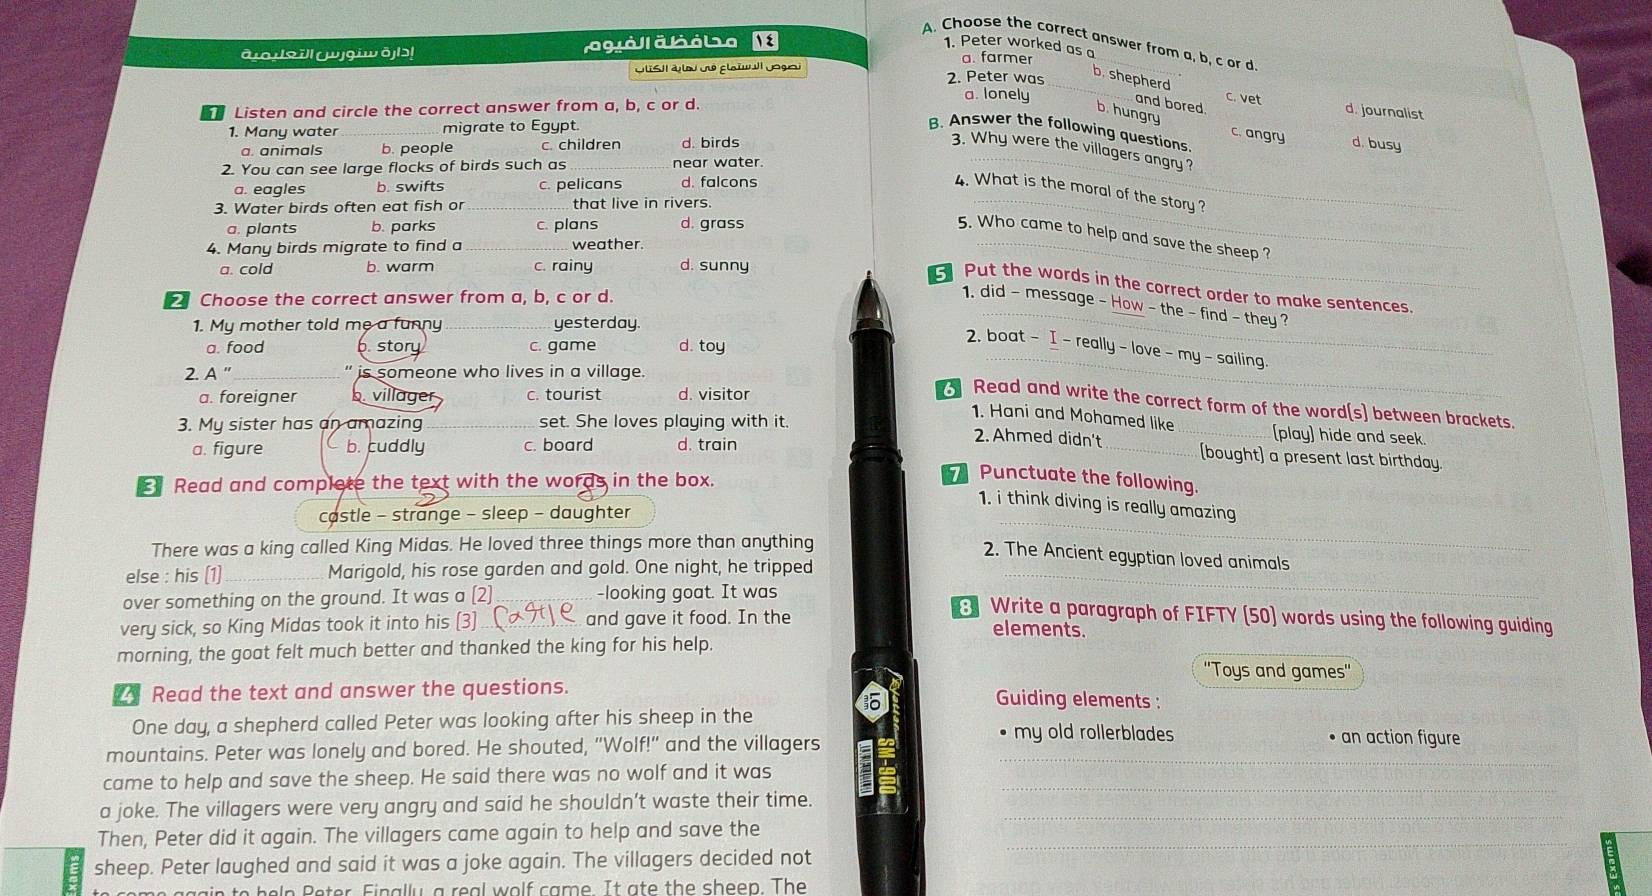 إدارة سنورس التعليمية
١٤ محافظة الفيوم
نصوص الاستماع فى نهاية الكتاب
1 Listen and circle the correct answer from a, b, c or d.
1. Many water ............ migrate to Egypt.
a. animals b. people c. children d. birds
2. You can see large flocks of birds such as ............ near water.
a. eagles b. swifts c. pelicans d. falcons
3. Water birds often eat fish or ............ that live in rivers.
a. plants b. parks c. plans d. grass
4. Many birds migrate to find a ............ weather.
a. cold b. warm c. rainy d. sunny
2 Choose the correct answer from a, b, c or d.
1. My mother told me a funny ............ yesterday.
a. food b. story c. game d. toy
2. A "............" is someone who lives in a village.
a. foreigner b. villager c. tourist d. visitor
3. My sister has an amazing ............ set. She loves playing with it.
a. figure b. cuddly c. board d. train
3 Read and complete the text with the words in the box.
castle – strange – sleep – daughter
There was a king called King Midas. He loved three things more than anything
else : his (1) ............ Marigold, his rose garden and gold. One night, he tripped
over something on the ground. It was a (2) ............ -looking goat. It was
very sick, so King Midas took it into his (3) castle and gave it food. In the
morning, the goat felt much better and thanked the king for his help.
4 Read the text and answer the questions.
One day, a shepherd called Peter was looking after his sheep in the
mountains. Peter was lonely and bored. He shouted, "Wolf!" and the villagers
came to help and save the sheep. He said there was no wolf and it was
a joke. The villagers were very angry and said he shouldn't waste their time.
Then, Peter did it again. The villagers came again to help and save the
sheep. Peter laughed and said it was a joke again. The villagers decided not
to come again to help Peter. Finally, a real wolf came. It ate the sheep. The
Exams
A. Choose the correct answer from a, b, c or d.
1. Peter worked as a ............ .
a. farmer b. shepherd c. vet d. journalist
2. Peter was ............ and bored.
a. lonely b. hungry c. angry d. busy
B. Answer the following questions.
3. Why were the villagers angry ?
4. What is the moral of the story ?
5. Who came to help and save the sheep ?
5 Put the words in the correct order to make sentences.
1. did – message – How – the – find – they ?
2. boat – I – really – love – my – sailing.
6 Read and write the correct form of the word(s) between brackets.
1. Hani and Mohamed like ............ (play) hide and seek.
2. Ahmed didn't ............ (bought) a present last birthday.
7 Punctuate the following.
1. i think diving is really amazing
2. The Ancient egyptian loved animals
8 Write a paragraph of FIFTY (50) words using the following guiding
elements.
"Toys and games"
Guiding elements :
• my old rollerblades • an action figure
1.0 mm
SM-900
Exams